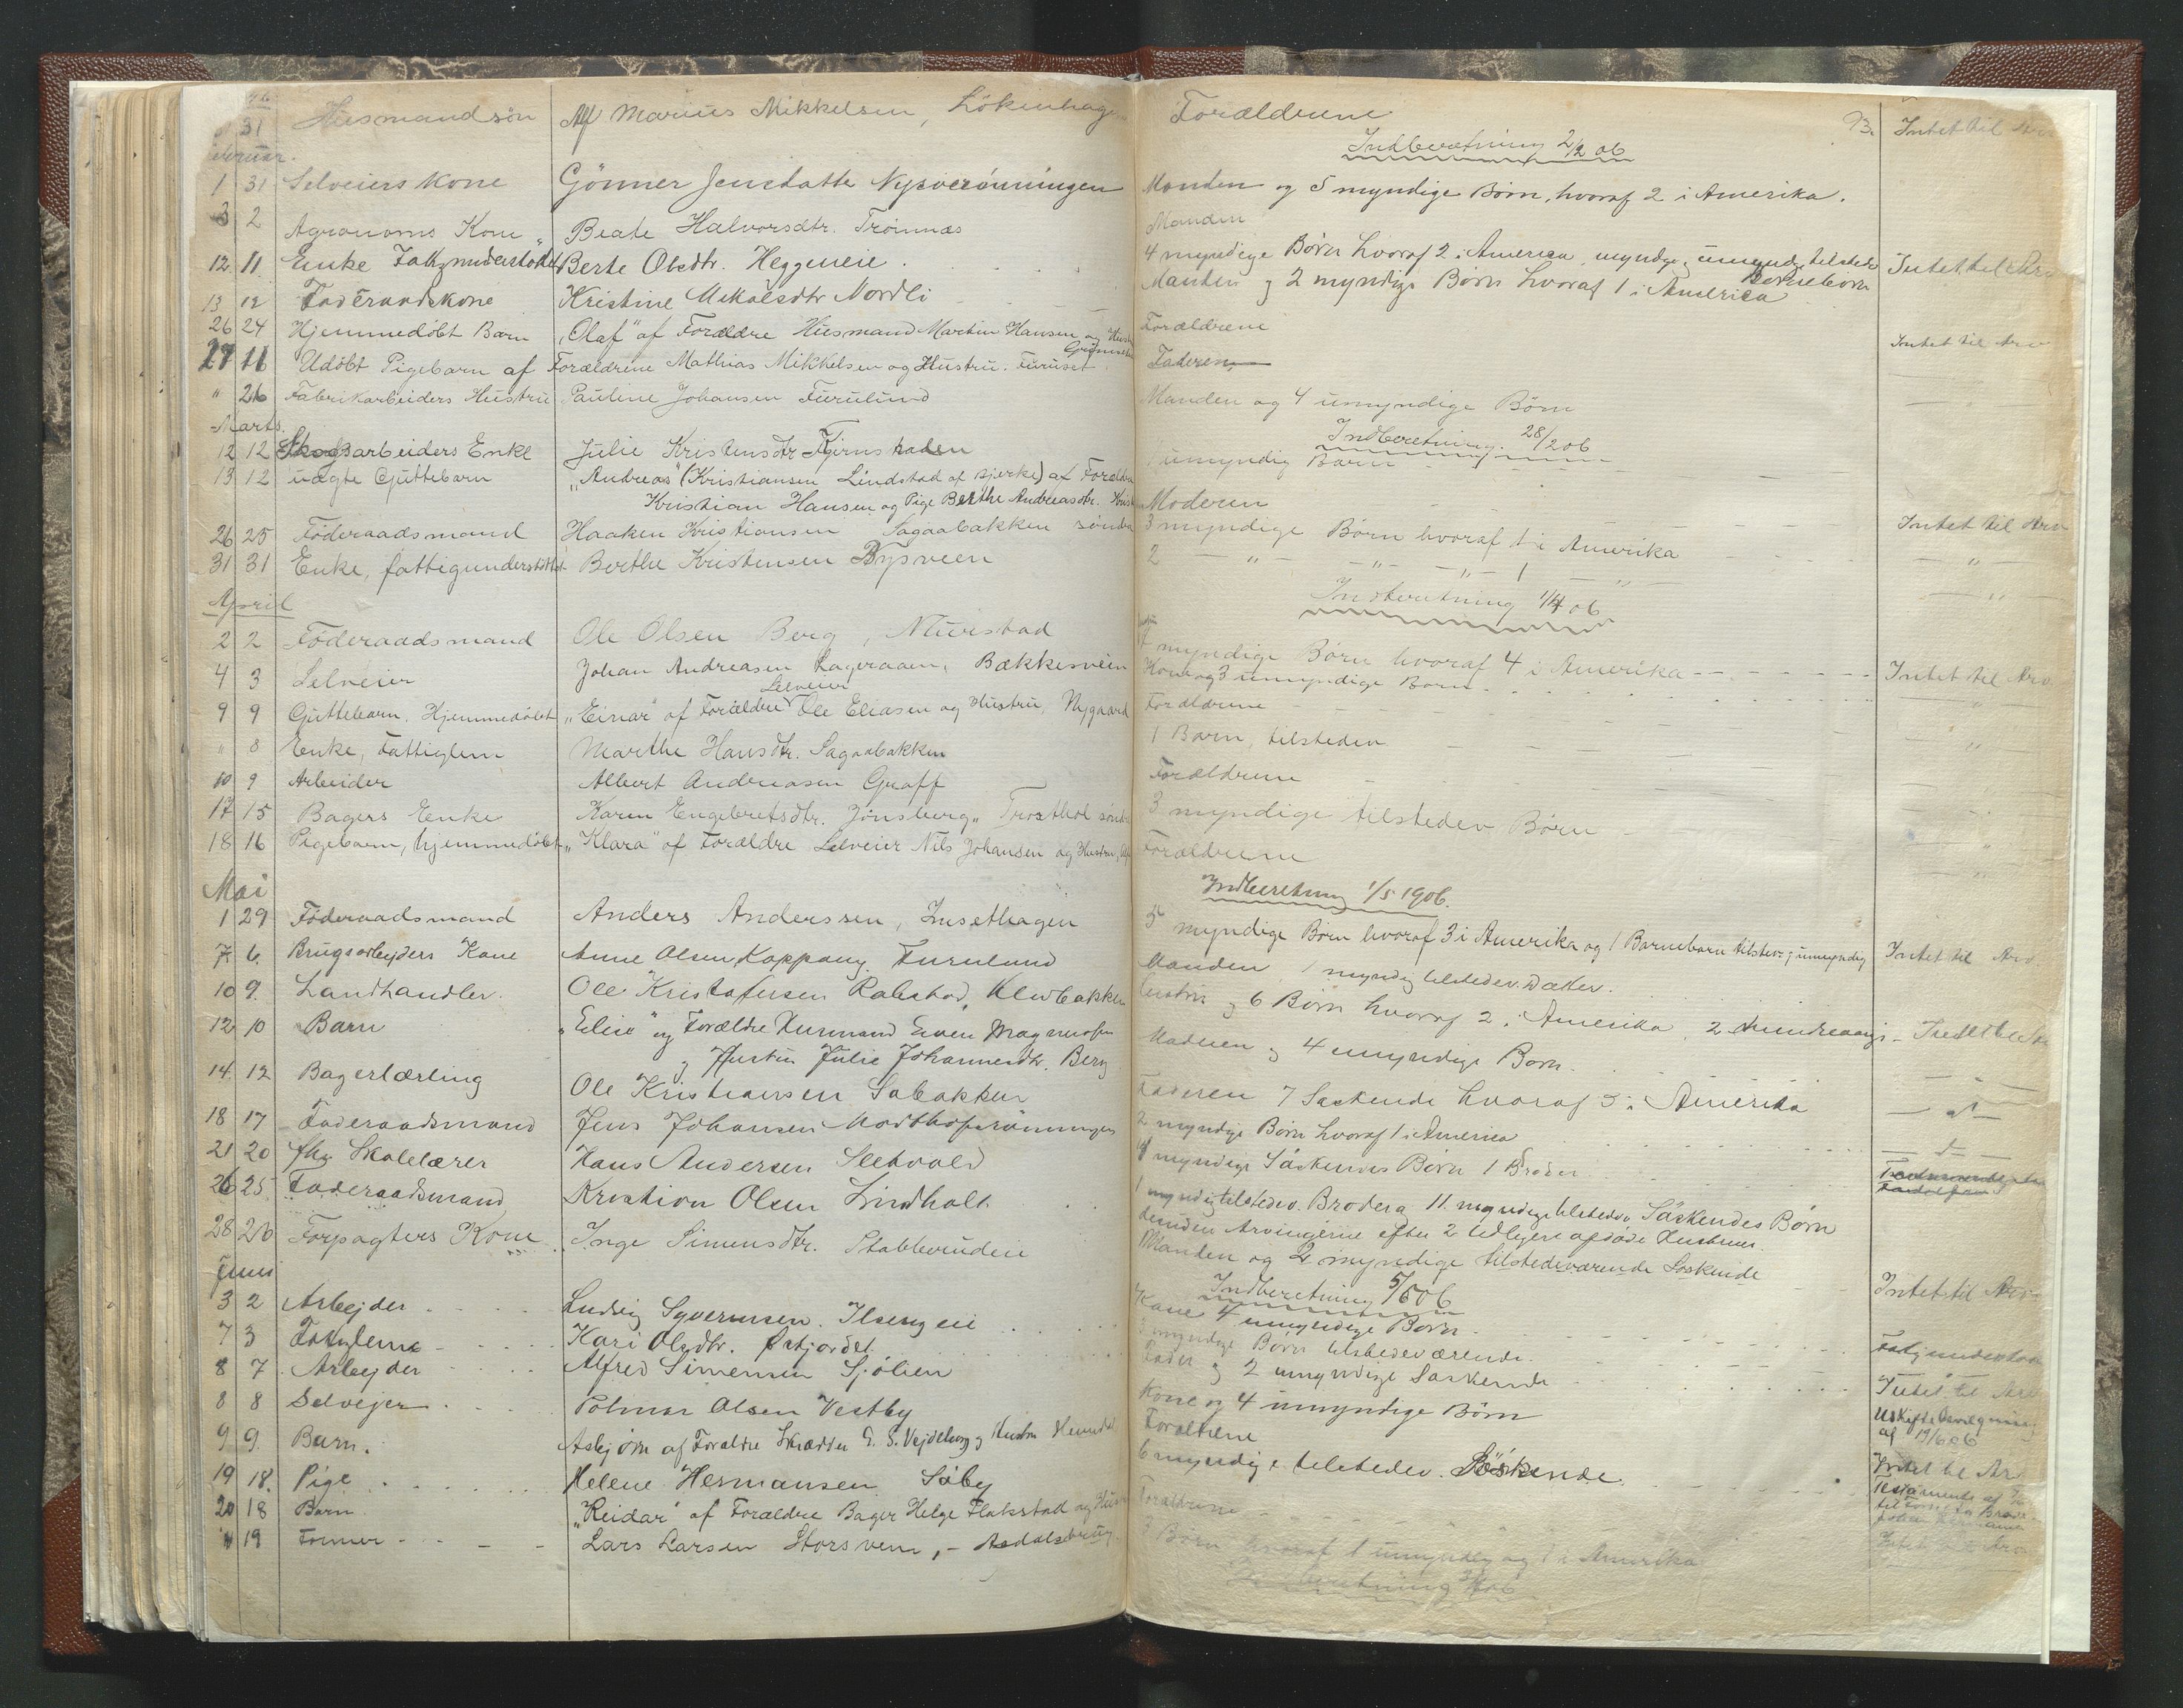 31 Husmandsön Af Marius Mikkelsen, Lökenhag
1 31 Selveiers Kone Gönner Jensdatter Nysveröningen
3 2 Agronoms Kone Beate Halvorsdtr. Trömnæs
12 11 Enke Berte Olsdtr. Heggeneie
13 12 Föderaadskone Kristine Mikalsdtr Nordli
26 24 Hjemmedöbt Barn "Olaf" af Forældre Husmand Martin Hansen og
27 11 Udöbt Pigebarn af Forældrene Mathias Mikkelsen og Hustru. Furuset
" 26 Fabrikarbeiders Hustru Pauline Johansen Furulund
Marts.
12 12 Skogsarbeiders Enke Julie Kristensdtr
13 12 uægte Guttebarn "Andreas" (Kristiansen Lindstad af Bjerke) af Forældre
Kristian Hansen og Pige Berthe Andreasdtr.
26 25 Föderaadsmand Haaken Kristiansen Sagaabakken söndre
31 31 Enke, fattigunderstöttet Berthe Kristensen Bysveen
April
2 2 Föderaadsmand Ole Olsen Berg, Nürstad
4 3 Selveier Johan Andreasen Lageraaen, Bækkesveen
Selveier
9 9 Guttebarn, Hjemmedöbt "Einar" af Forældre Ole Eliasen og Hustru, Nygaard
" 8 Enke, Fattiglem Marthe Hansdtr. Sagaabakken
10 9 Arbeider Albert Andreasen Graff
17 15 Bagers Enke Karen Engebretsdtr. Jönsberg, Trosthol
18 16 Pigebarn, hjemmedöbt "Klara" af Forældre Selveier Nils Johansen og Hustru,
Mai
1 29 Föderaadsmand Anders Anderssen, Insethagen
7 6 Brugsarbeyders Kone Anne Olsen Koppang. Furulund
10 9. Landhandler. Ole Kristofersen Rabstad, Klevbakken
12 10 Barn "Elise" og Forældre Husmand Even Magnussen
og Hustru Julie Johannesdtr. Berg
14. 12 Bagerlærling Ole Kristiansen Sobakken
18 17 Föderaadsmand Jens Johansen
21 20 fhv Skolelærer Hans Andersen Seehvold
26 25 Föderaadsmand Kristian Olsen Lindholt
28 26 Forpagters Kone Inge Simensdtr. Stabberudeie
Juni
3 2 Arbejder Ludvig Syversen. Ilsengeie
7 3 Fatiglem Kari Olsdtr. Østjordet
8 7 Arbejder Alfred Simensen Sjölien
8 8 Selvejer Polmar Olsen Vestby
9 9. Barn. Asbjörn af Forældre Skrædder E. S. Vejdeborg og Hustru
19 18. Pige Helene Hermansen Söby
20 18 Barn "Reidar" af Forældre Bager Helge Flakstad og
" 19 Former Lars Larsen Storsveen, - Aadalsbrug
Forældrene 93. Intet til Arv
Indberetning 2/2 06
Manden og 5 myndige Börn, hvoraf 2 i Amerika.
Manden
4 myndige Börn hvoraf 2 i America, myndige umyndige tilstede Intet til Arv
Börnebörn
Manden og 2 myndige Börn hvoraf 1 i America
Forældrene
Faderen Intet til Arv
Manden og 4 umyndige Börn
Indberetning. 28/2 06
umyndig Barn
Moderen
3 myndige Börn hvoraf 1 i Amerika Intet til Arv
2 - " - - " - - " - 1 - " -
Indberetning 1/4 06
7 myndige Börn hvoraf 4 i Amerika Intet til Arv
Kone og 3 umyndige Börn
Forældrene
1 Barn, tilstedev
Forældrene
3 myndige tilstedev Börn
Forældrene
Indberetning 1/5 1906.
5 myndige Börn hvoraf 3 i Amerika og 1 Barnebarn tilstev. umyndig Intet til Arv
Manden 1 myndig tilstedev. Datter.
Hustru og 6 Börn hvoraf 2 i Amerika, 2
Moderen og 4 umyndige Börn.
Faderen 7 Söskende hvoraf 5 i Amerika
2 myndige Börn hvoraf 1 i America
4 myndige Söskendes Börn 1 Broder
1 myndig tilstedev. Broder og 11 myndige tilstedev. Söskendes Börn
desuden Arvingerne efter 2 tidligere afdöde Hustruer.
Manden og 2 myndige tilstedeværende Söskende
Indberetning 5/6 06 Intet til Arv
Kone 4 umyndige Börn.
myndige Börn tilstedeværende.
Fader og 2 umyndige Söskende Intet til Arv
Kone og 4 umyndige Börn
Forældrene af 19/6 06
6 myndige tilstedev. Söskende. Intet til Arv
Forældrene
3 Börn hvoraf 1 umyndig og 1 i Amerika
Indberetning